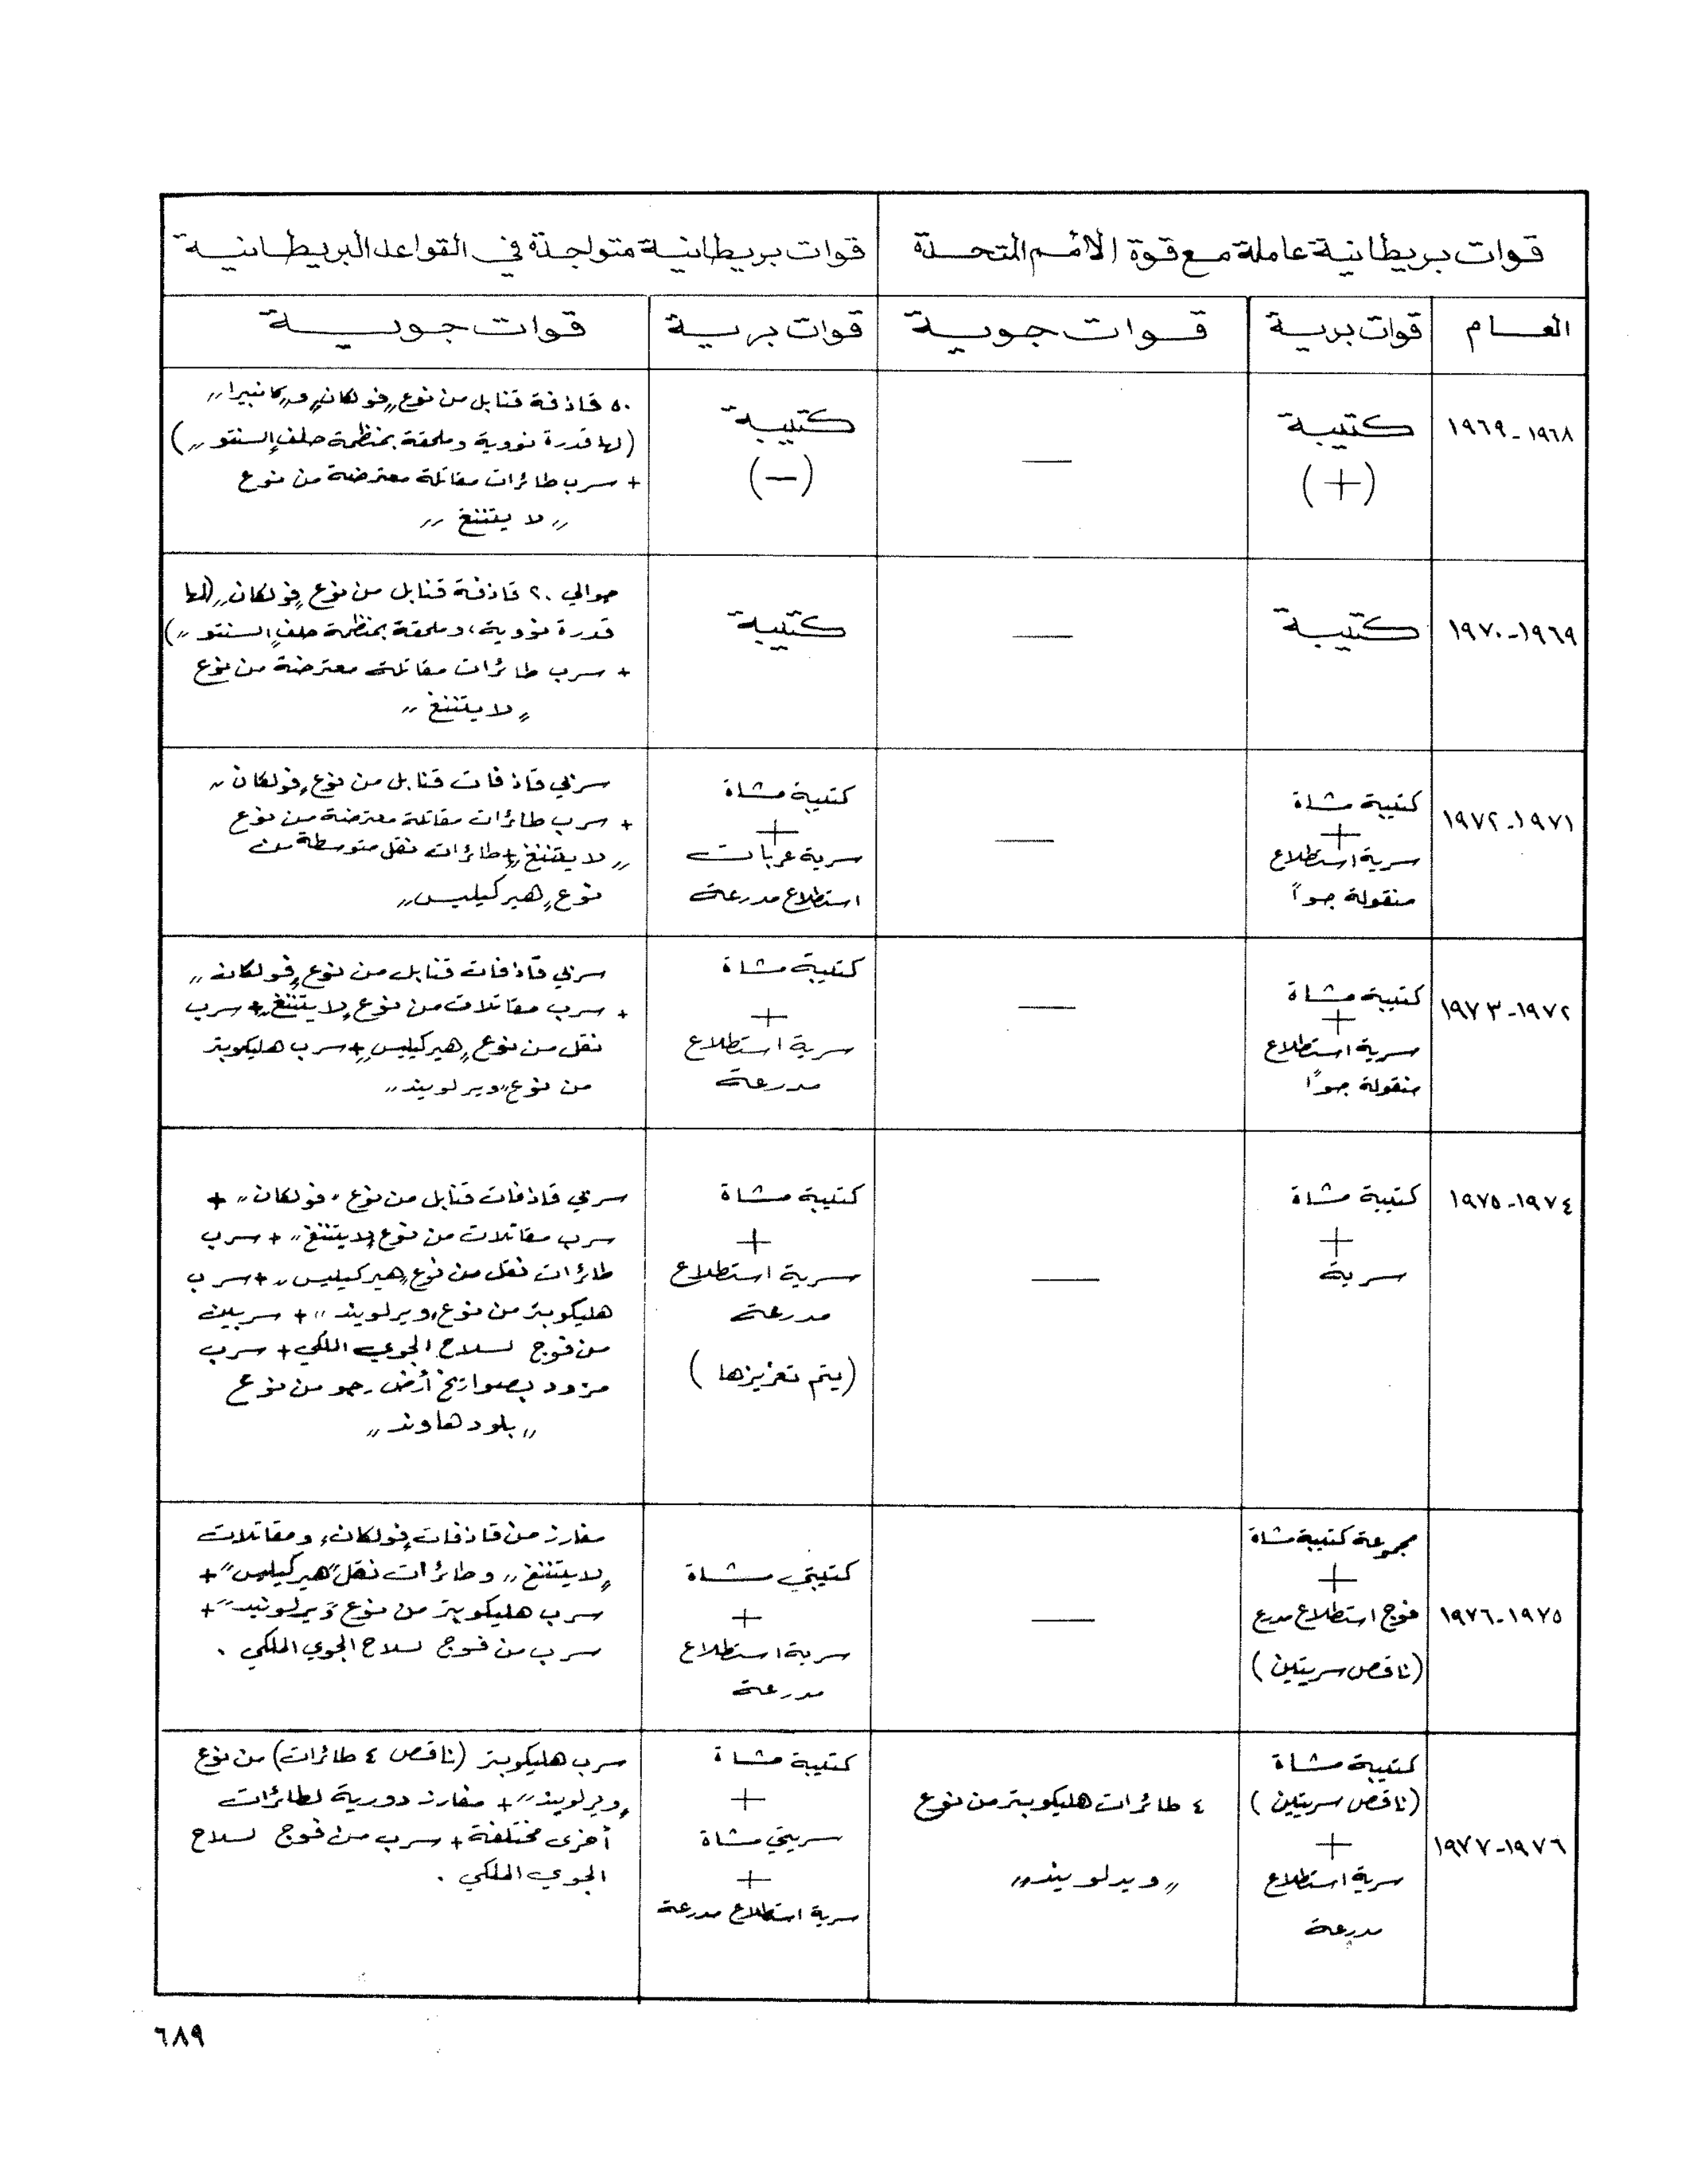 قوات بريطانية عاملة مع قوة الأمم المتحدة
قوات بريطانية متواجدة في القواعد البريطانية
العام
قوات برية
قوات جوية
قوات برية
قوات جوية
١٩٦٨-١٩٦٩
كتيبة
(+)
—
كتيبة
(-)
٥٠ قاذفة قنابل من نوع „فولكان„ و„كانبيرا„
(لها قدرة نووية وملحقة بمنظمة حلف „السنتو„)
+ سرب طائرات مقاتلة معترضة من نوع
„لايتننغ„
١٩٦٩-١٩٧٠
كتيبة
—
كتيبة
حوالي ٢٠ قاذفة قنابل من نوع „فولكان„ (لها
قدرة نووية، وملحقة بمنظمة حلف „السنتو„)
+ سرب طائرات مقاتلة معترضة من نوع
„لايتننغ„
١٩٧١-١٩٧٢
كتيبة مشاة
+
سرية استطلاع
منقولة جواً
—
كتيبة مشاة
+
سرية عربات
استطلاع مدرعة
سربي قاذفات قنابل من نوع „فولكان„
+ سرب طائرات مقاتلة معترضة من نوع
„لايتننغ„ + طائرات نقل متوسطة من
نوع „هيركيليس„
١٩٧٢-١٩٧٣
كتيبة مشاة
+
سرية استطلاع
منقولة جواً
—
كتيبة مشاة
+
سرية استطلاع
مدرعة
سربي قاذفات قنابل من نوع „فولكان„
+ سرب مقاتلات من نوع „لايتننغ„ + سرب
نقل من نوع „هيركيليس„ + سرب هليكوبتر
من نوع „ويرلويند„
١٩٧٤-١٩٧٥
كتيبة مشاة
+
سرية
—
كتيبة مشاة
+
سرية استطلاع
مدرعة
(يتم تعزيزها)
سربي قاذفات قنابل من نوع „فولكان„ +
سرب مقاتلات من نوع „لايتننغ„ + سرب
طائرات نقل من نوع „هيركيليس„ + سرب
هليكوبتر من نوع „ويرلويند„ + سربين
من فوج لسلاح الجوي الملكي + سرب
مزود بصواريخ أرض-جو من نوع
„بلودهاوند„
١٩٧٥-١٩٧٦
مجموعة كتيبة مشاة
+
فوج استطلاع مدرع
(ناقص سريتين)
—
كتيبتي مشاة
+
سرية استطلاع
مدرعة
مفارز من قاذفات „فولكان„ ومقاتلات
„لايتننغ„ وطائرات نقل „هيركيليس„ +
سرب هليكوبتر من نوع „ويرلونيد„ +
سرب من فوج لسلاح الجوي الملكي .
١٩٧٦-١٩٧٧
كتيبة مشاة
(ناقص سريتين)
+
سرية استطلاع
مدرعة
٤ طائرات هليكوبتر من نوع
„ويدلويند„
كتيبة مشاة
+
سريتي مشاة
+
سرية استطلاع مدرعة
سرب هليكوبتر (ناقص ٤ طائرات) من نوع
„ويرلويند„ + مفارز دورية لطائرات
أخرى مختلفة + سرب من فوج لسلاح
الجوي الملكي .
٦٨٩